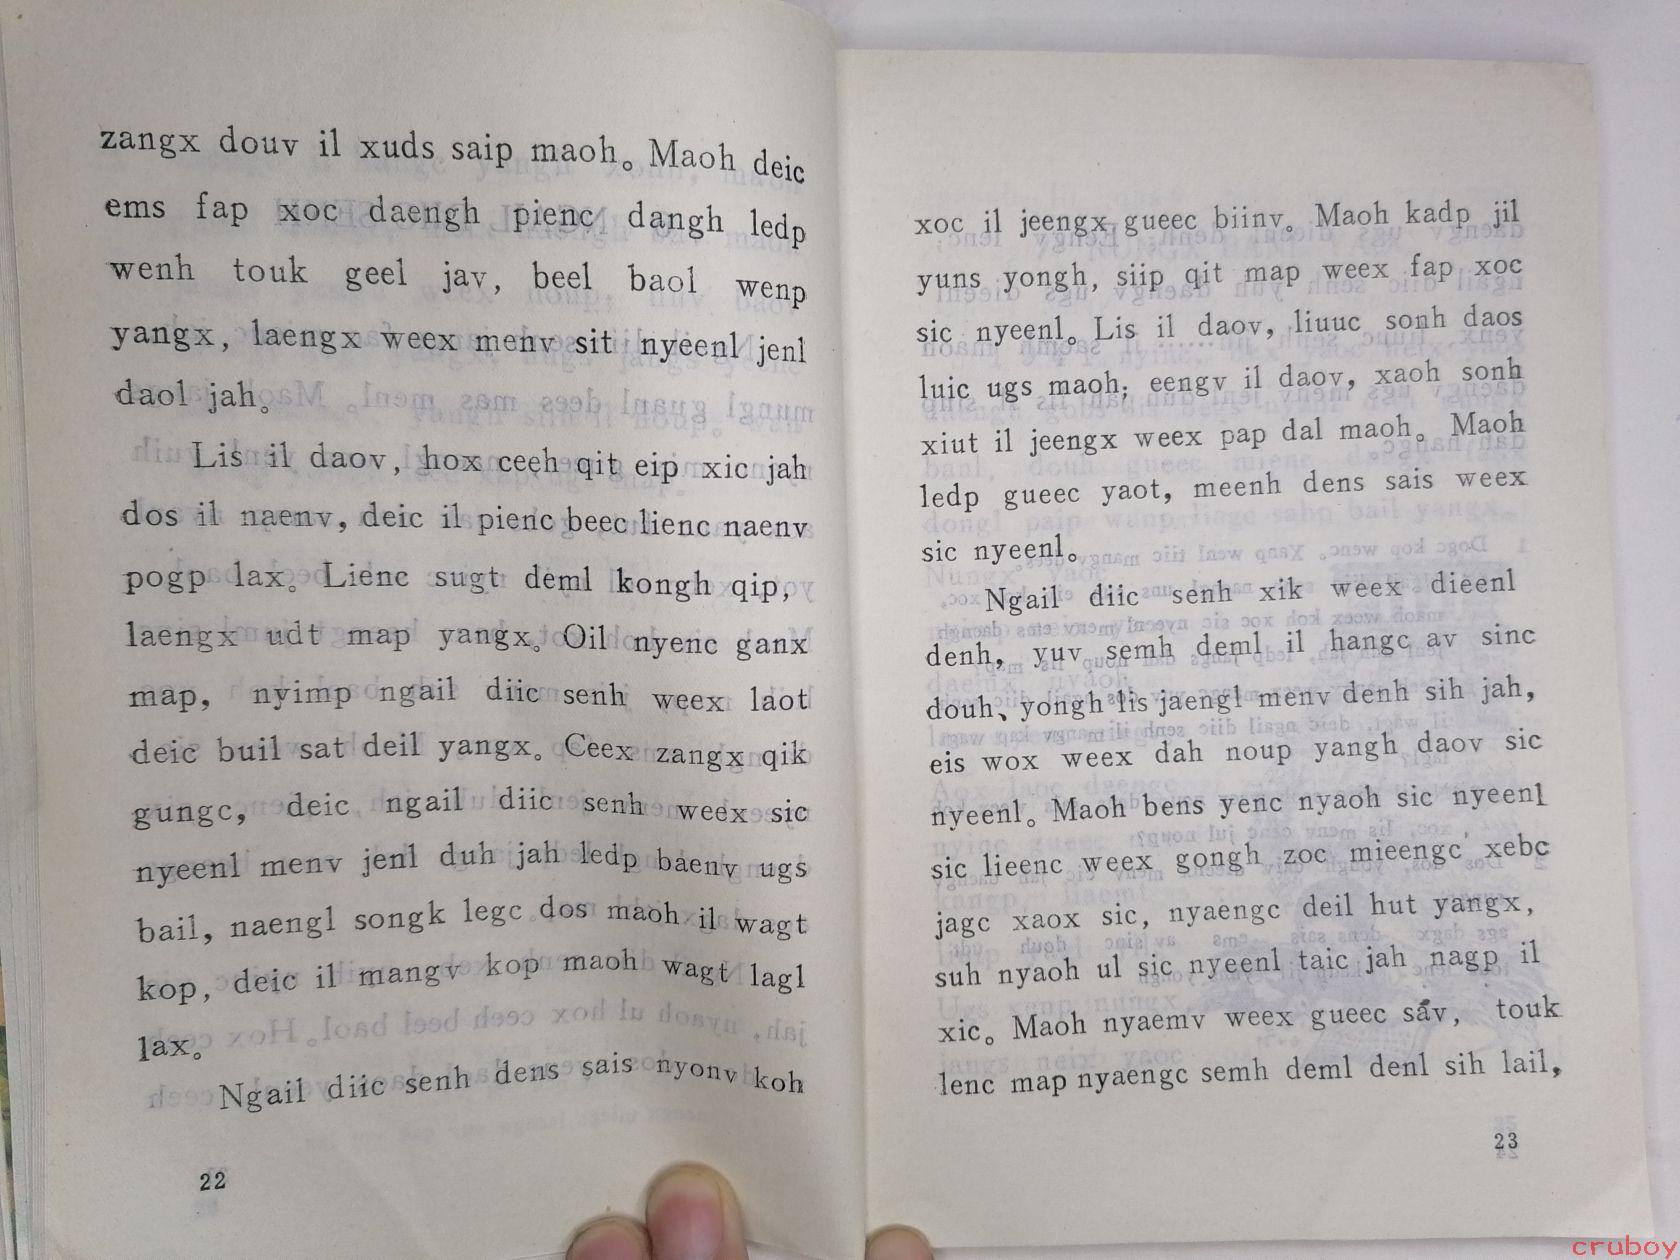 zangx douv il xuds saip maoh。Maoh deic
ems fap xoc daengh pienc dangh ledp
wenh touk geel jav, beel baol wenp
yangx, laengx weex menv sit nyeenl jenl
daol jah。
Lis il daov, hox ceeh qit eip xic jah
dos il naenv, deic il pienc beec lienc naenv
pogp lax。Lienc sugt deml kongh qip,
laengx udt map yangx。Oil nyenc ganx
map, nyimp ngail diic senh weex laot
deic buil sat deil yangx。Ceex zangx qik
gungc, deic ngail diic senh weex sic
nyeenl menv jenl duh jah ledp baenv ugs
bail, naengl songk legc dos maoh il wagt
kop, deic il mangv kop maoh wagt lagl
lax。
Ngail diic senh dens sais nyonv koh
22
xoc il jeengx gueec biinv。Maoh kadp jil
yuns yongh, siip qit map weex fap xoc
sic nyeenl。Lis il daov, liuuc sonh daos
luic ugs maoh; eengv il daov, xaoh sonh
xiut il jeengx weex pap dal maoh。Maoh
ledp gueec yaot, meenh dens sais weex
sic nyeenl。
Ngail diic senh xik weex dieenl
denh, yuv semh deml il hangc av sinc
douh、yongh lis jaengl menv denh sih jah,
eis wox weex dah noup yangh daov sic
nyeenl。Maoh bens yenc nyaoh sic nyeenl
sic lieenc weex gongh zoc mieengc xebc
jagc xaox sic, nyaengc deil hut yangx,
suh nyaoh ul sic nyeenl taic jah nagp il
xic。Maoh nyaemv weex gueec sav, touk
lenc map nyaengc semh deml denl sih lail,
23
cruboy